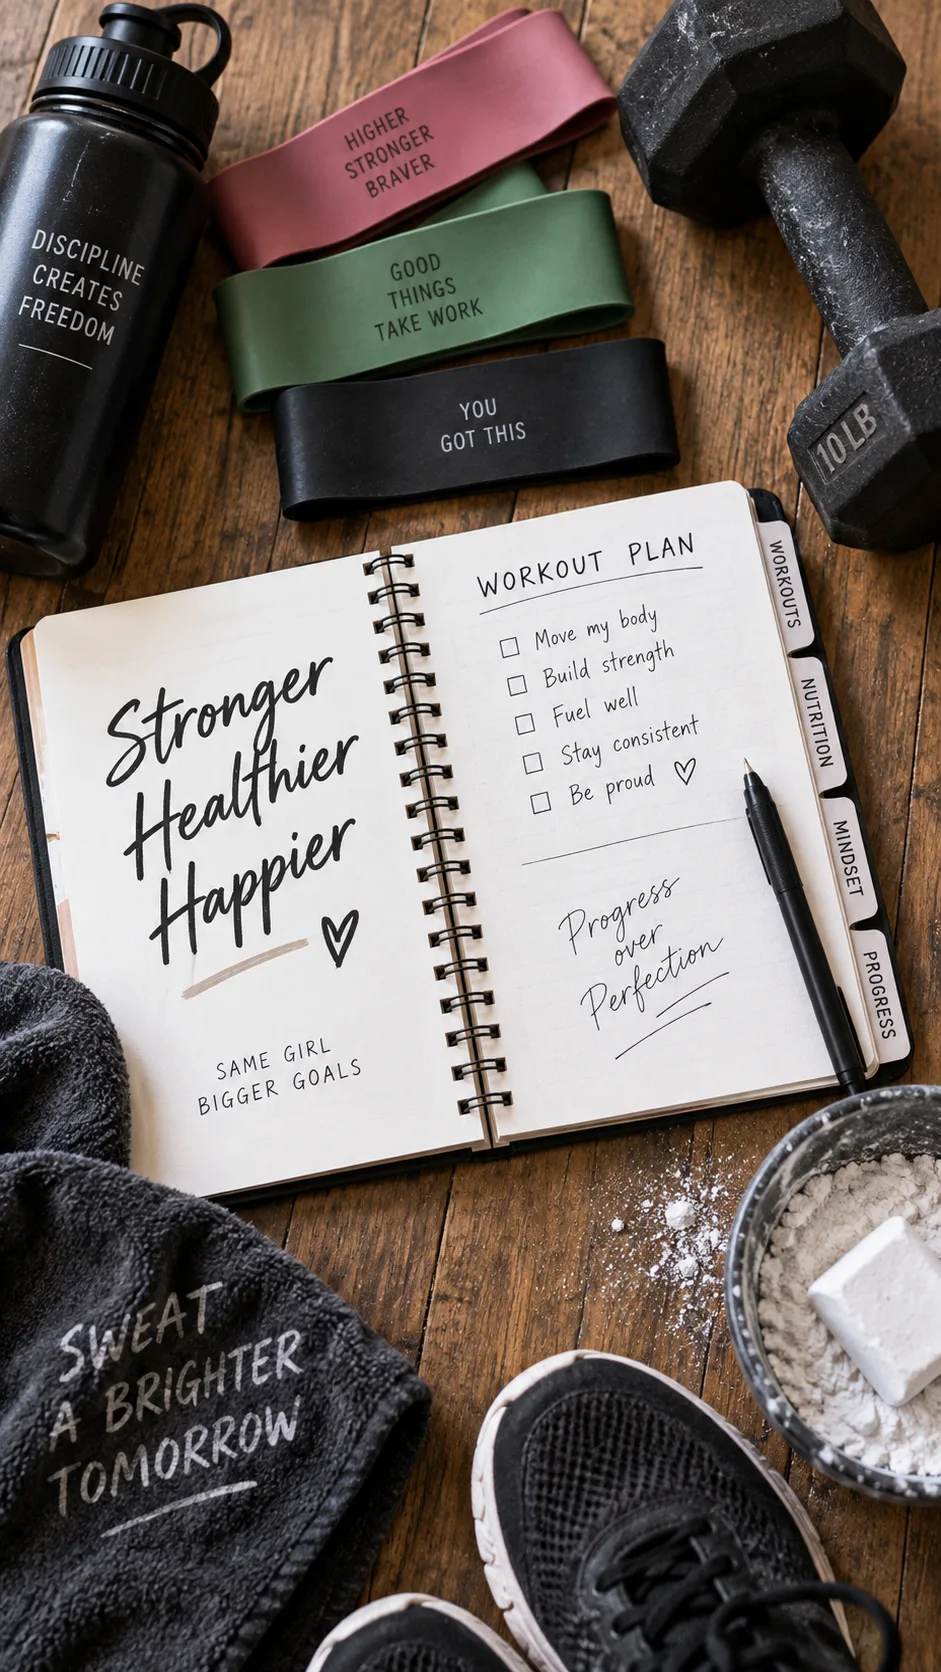 DISCIPLINE
CREATES
FREEDOM
HIGHER
STRONGER
BRAVER
GOOD
THINGS
TAKE WORK
YOU
GOT THIS
10 LB
Stronger
Healthier
Happier
SAME GIRL
BIGGER GOALS
WORKOUT PLAN
Move my body
Build strength
Fuel well
Stay consistent
Be proud
Progress
over
Perfection
WORKOUTS
NUTRITION
MINDSET
PROGRESS
SWEAT
A BRIGHTER
TOMORROW